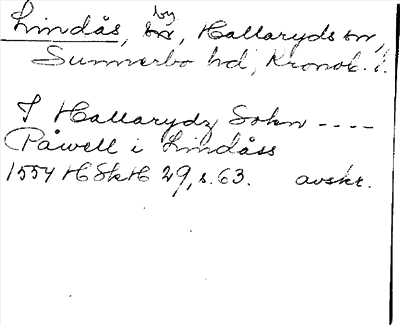 by
Lindås, Hallaryds sn,
Sunnerbo hd, Kronob. l.
I Hallarydz Sokn ----
Påwell i Lindåss
1554 HSkH 29, s. 63. avskr.